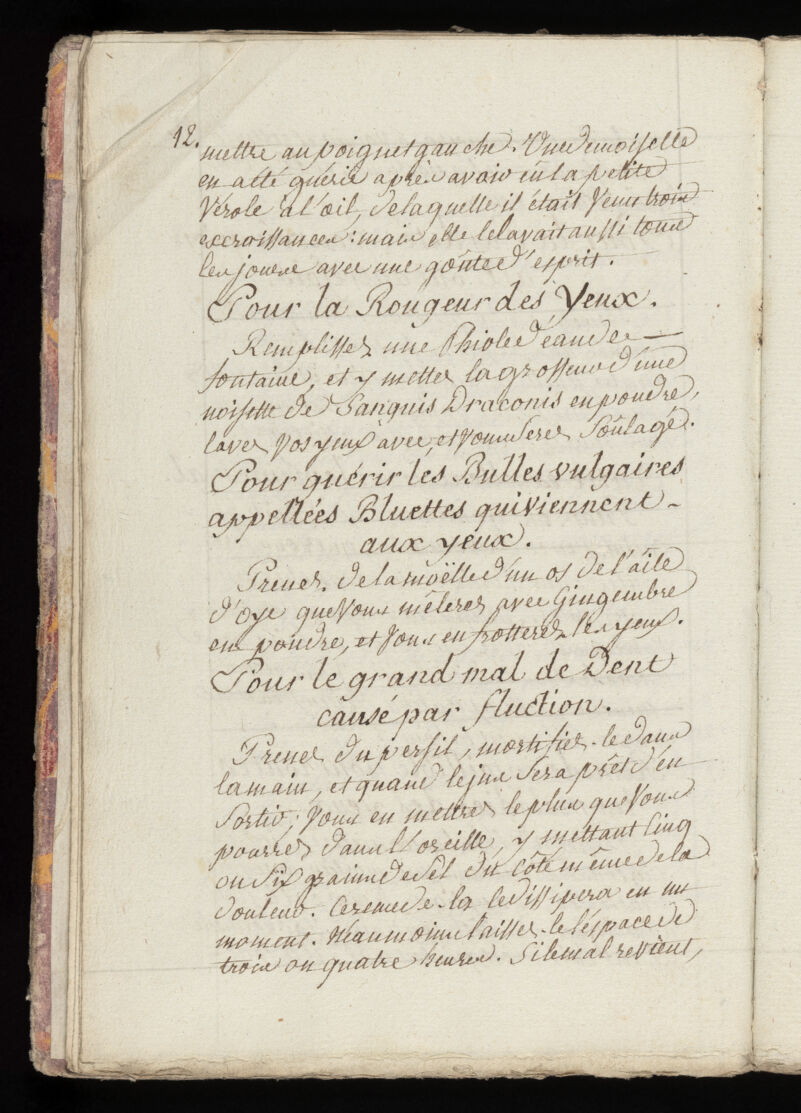 12.
mettre au poignet gauche. Une Demoiselle
en a été guérie après avoir eû la petite
Vérole à l'œil, de laquelle il était Venu trois
excroissances: mais elle le lavait aussi tous
les jours avec une goûte d'esprit.
Pour la Rougeur des Yeux.
Remplissez une Phiole d'eau de
fontaine, et y mettez la grosseur d'une
noisette de Sanguis Draconis en poudre,
lavez Vos yeux avec, et Vous Serez Soulagé.
Pour guérir les Bulles vulgaires
appellées Bluettes qui Viennent
aux yeux.
Prenez de la moëlle d'un os de l'aîle
d'oye que Vous mêlerez avec Gingembre
en poudre, et Vous en frotterez les yeux.
Pour le grand mal de Dent
causé par fluction.
Prenez du persil, mortifiez-le dans
la main, et quand le jus Sera prêt d'en
Sortir; Vous en mettrez le plus que Vous
pourrez dans l'oreille, y mettant Cinq
ou Six grains de Sel du Côté même de la
douleur. Ce remede-là le dissipera en un
moment. Néanmoins laissez-le l'éspace de
trois ou quatre heures. Si le mal revient,